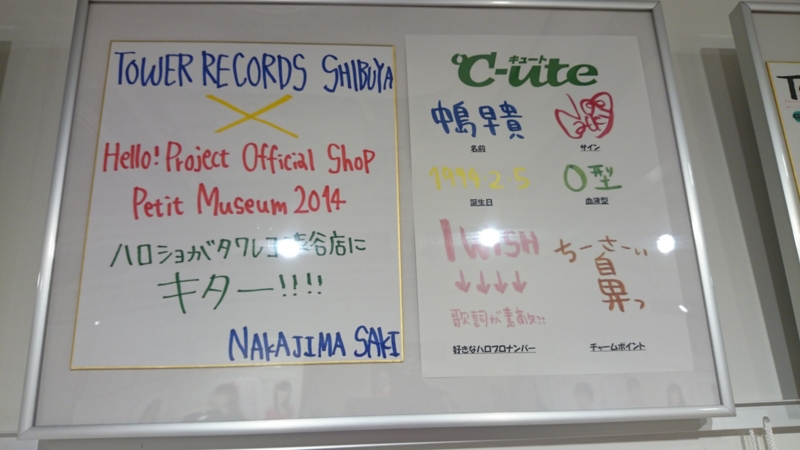 TOWER RECORDS SHIBUYA
×
Hello! Project Official Shop
Petit Museum 2014
ハロショがタワレコ渋谷店に
キター!!!!
NAKAJIMA SAKI
キュート
℃-ute
中島早貴
名前
サイン
1994.2.5
誕生日
O型
血液型
I WISH
↓↓↓↓
歌詞が素敵!!
好きなハロプロナンバー
ちーさーぃ
鼻っ
チャームポイント